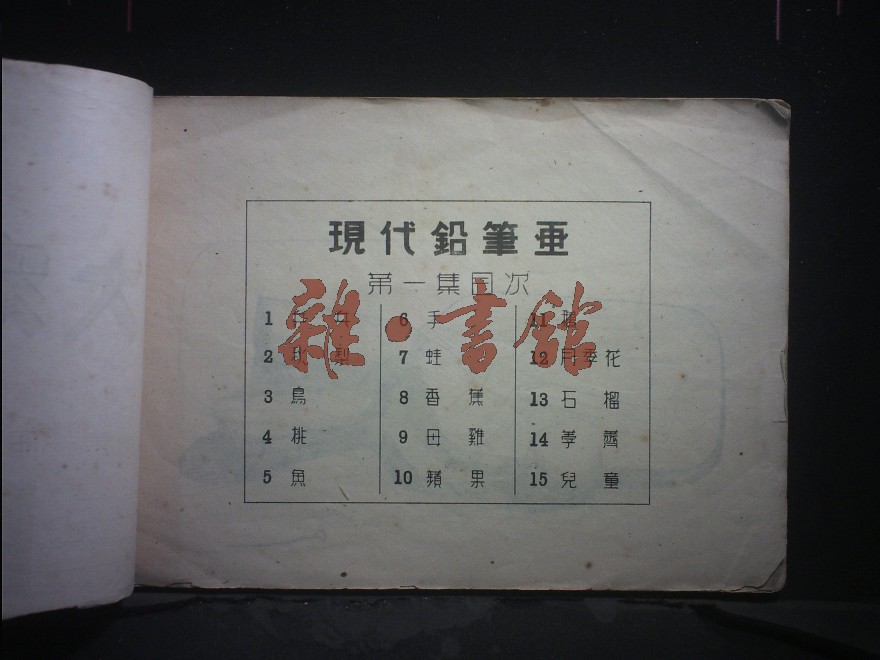 現代鉛筆画
第一集目次
1
2 秋 梨
3 鳥
4 桃
5 魚
6 手
7 蛙
8 香 蕉
9 母 雞
10 蘋 果
11
12 月季花
13 石 榴
14 荸 薺
15 兒 童
雜·書館